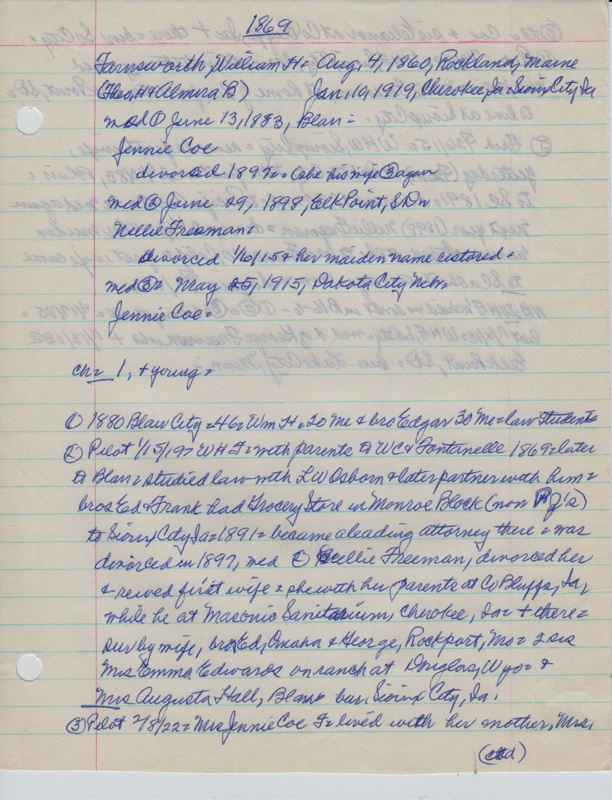 1869
Farnsworth, William H = Aug, 4, 1860, Rockland, Maine
(Theo, H & Almira B) Jan, 10, 1919, Cherokee, Ia = Sioux City, Ia
med ① June 13, 1883, Blair =
Jennie Coe
divorced 1897 = (also his wife ③ again
med ② June 29, 1898, Elk Point, S D
Nellie Freeman =
divorced 1/6/15 & her maiden name restored =
med ③ May 25, 1915, Dakota City Nebr =
Jennie Coe =
ch = 1, + young =
① 1880 Blair City = 46 = Wm H = 20 Me & bro Edgar 30 Me = law students
② Pilot 1/15/19 = W H F = with parents to W C & Fontanelle 1869 = later
to Blair = studied law with L W Osborn & later partner with him =
bros Ed & Frank had Grocery Store in Monroe Block (now
to Sioux City Ia = 1891 = became a leading attorney there = was
divorced in 1897, med ② Nellie Freeman, divorced her
& rewed first wife = she with her parents at Co Bluffs, Ia,
while he at Masonic Sanitarium, Cherokee, Ia = + there =
sur by wife, bro Ed, Omaha & George, Rockport, Mo = 2 sis
Mrs Emma Edwards on ranch at Douglas, Wyo = &
Mrs Augusta Hall, Blair bur, Sioux City, Ia,
③ Pilot 2/8/22 = Mrs Jennie Coe F = lived with her mother, Mrs,